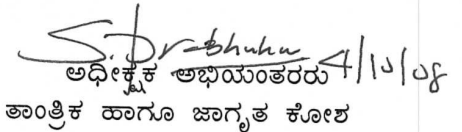 S. Prabhuhu 4/10/08
ಅಧೀಕ್ಷಕ ಅಭಿಯಂತರರು
ತಾಂತ್ರಿಕ ಹಾಗೂ ಜಾಗೃತ ಕೋಶ